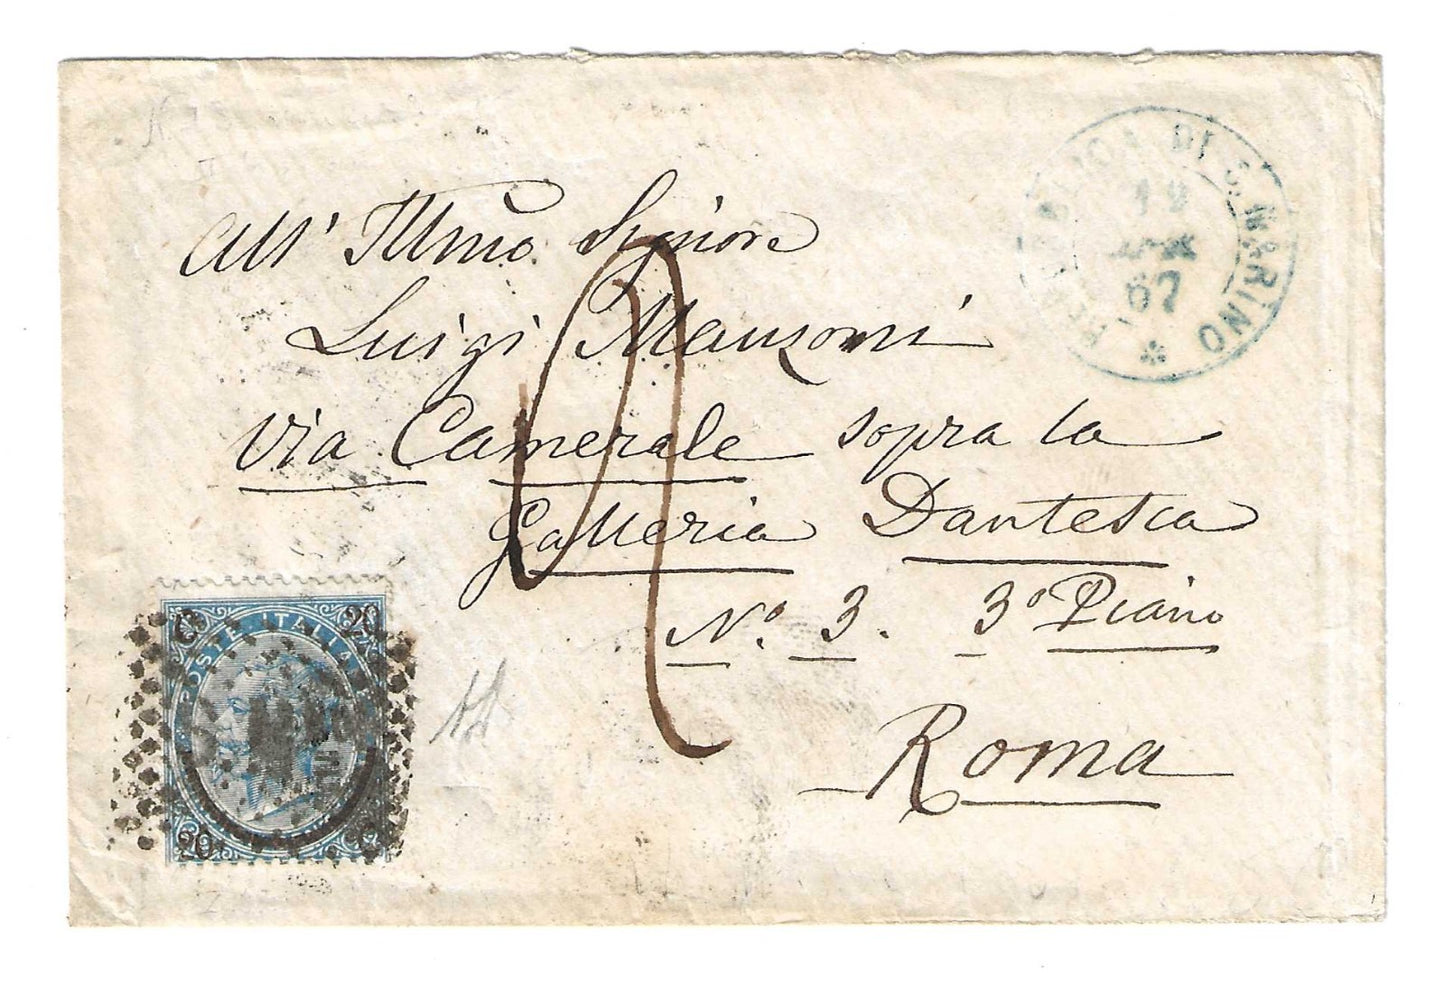 REPUBBLICA DI S. MARINO
19
67
All' Illmo Signore
Luigi Manzoni
Via Camerale sopra la
Galleria Dantesca
No. 3. 3o Piano
Roma
C 20
POSTE ITALIANE
20 C